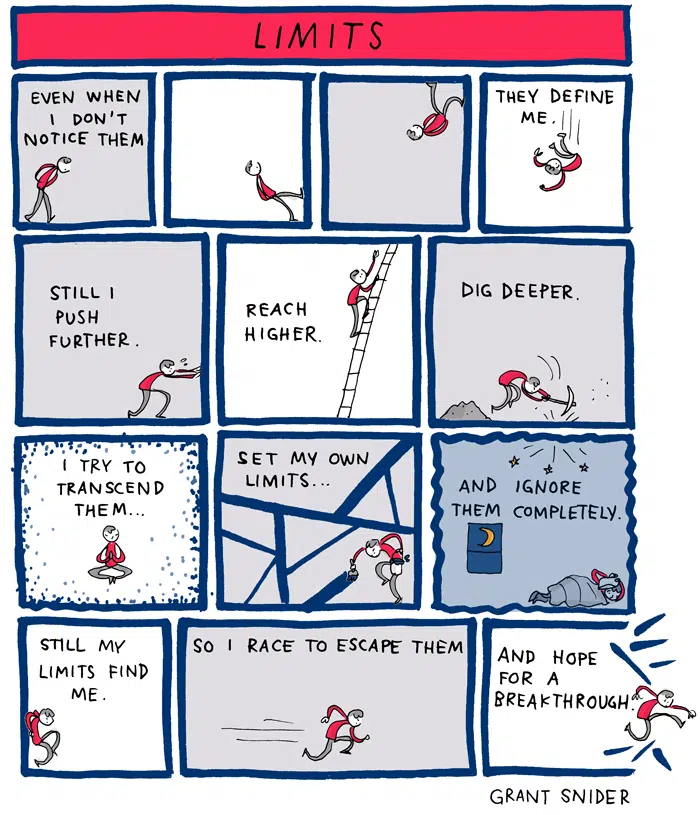 LIMITS
EVEN WHEN
I DON'T
NOTICE THEM
THEY DEFINE
ME.
STILL I
PUSH
FURTHER.
REACH
HIGHER.
DIG DEEPER.
I TRY TO
TRANSCEND
THEM...
SET MY OWN
LIMITS...
AND IGNORE
THEM COMPLETELY.
STILL MY
LIMITS FIND
ME.
SO I RACE TO ESCAPE THEM
AND HOPE
FOR A
BREAKTHROUGH.
GRANT SNIDER